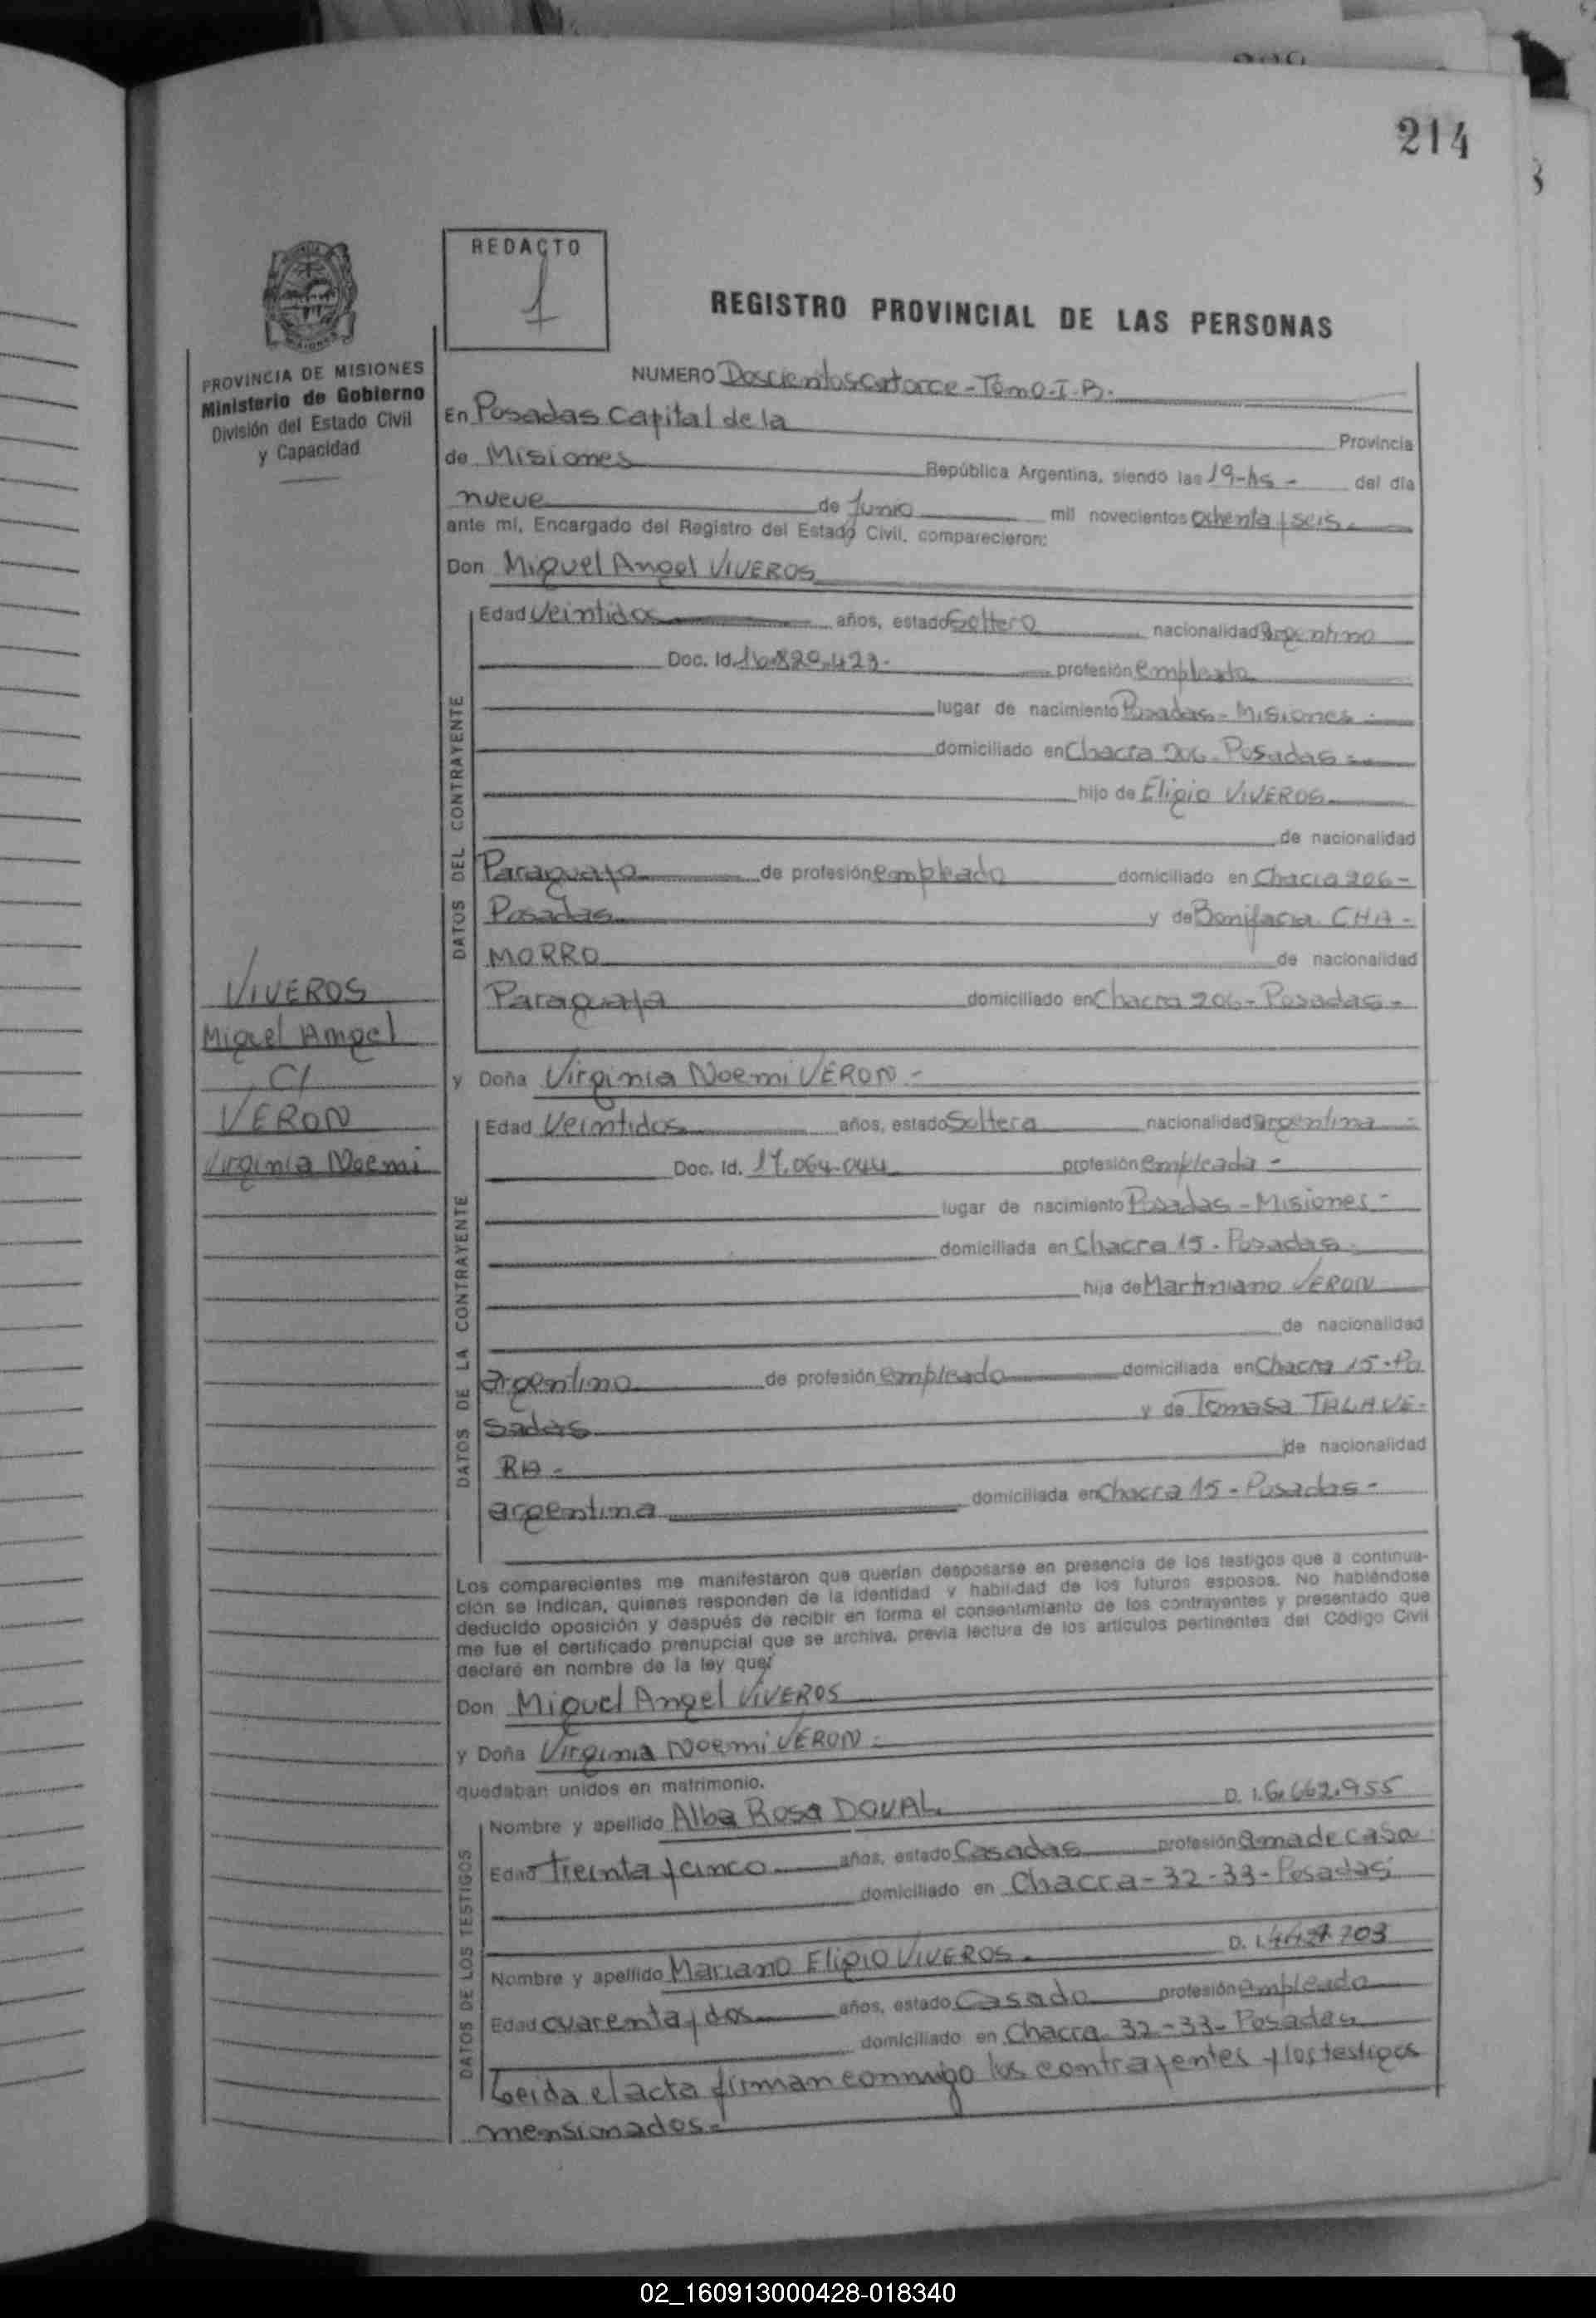 214
REDACTO
1
REGISTRO PROVINCIAL DE LAS PERSONAS
PROVINCIA DE MISIONES
Ministerio de Gobierno
División del Estado Civil
y Capacidad
NUMERO Doscientoscatorce-Tomo-I-B-
En Posadas Capital de la Provincia
de Misiones República Argentina, siendo las 19-hs- del día
nueve de Junio mil novecientos ochenta y seis.
ante mí, Encargado del Registro del Estado Civil, comparecieron:
Don Miguel Angel VIVEROS
DATOS DEL CONTRAYENTE
Edad Veintidos años, estado Soltero nacionalidad argentino
Doc. Id. 16.829.423- profesión empleado
lugar de nacimiento Posadas-Misiones-
domiciliado en Chacra 206-Posadas-
hijo de Eligio VIVEROS
de nacionalidad
Paraguayo de profesión empleado domiciliado en Chacra 206-
Posadas y de Bonifacia CHA-
MORRO de nacionalidad
Paraguaya domiciliado en Chacra 206-Posadas-
VIVEROS
Miguel Angel
C/
VERON
Virginia Noemi
y Doña Virginia Noemi VERON-
DATOS DE LA CONTRAYENTE
Edad Veintidos años, estado Soltera nacionalidad argentina-
Doc. Id. 17.064.044 profesión empleada-
lugar de nacimiento Posadas-Misiones-
domiciliada en Chacra 15-Posadas-
hija de Martiniano VERON
de nacionalidad
argentino de profesión empleado domiciliada en Chacra 15-Po
sadas y de Tomasa TALAVE-
RA- de nacionalidad
argentina domiciliada en Chacra 15-Posadas-
Los comparecientes me manifestaron que querían desposarse en presencia de los testigos que a continua-
ción se indican, quienes responden de la identidad y habilidad de los futuros esposos. No habiéndose
deducido oposición y después de recibir en forma el consentimiento de los contrayentes y presentado que
me fue el certificado prenupcial que se archiva, previa lectura de los artículos pertinentes del Código Civil
declaré en nombre de la ley que:
Don Miguel Angel VIVEROS
y Doña Virginia Noemi VERON-
quedaban unidos en matrimonio.
DATOS DE LOS TESTIGOS
Nombre y apellido Alba Rosa DOVAL D. I. 6.662.955
Edad Treinta y cinco años, estado Casadas profesión ama de casa
domiciliado en Chacra-32-33-Posadas
Nombre y apellido Mariano Eligio VIVEROS- D. I.
Edad cuarenta y dos años, estado Casado profesión empleado
domiciliado en Chacra-32-33-Posadas
Leida el acta firman conmigo los contrayentes y los testigos
mensionados-
02_160913000428-018340